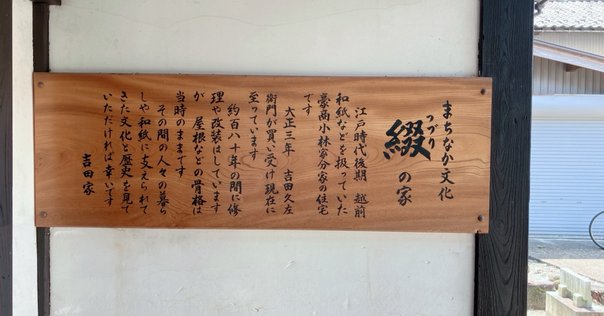 まちなか文化
綴の家
つづり
江戸時代後期　越前
和紙などを扱っていた
豪商小林家分家の住宅
です
大正三年　吉田久左
衛門が買い受け現在に
至っています
約百八十年の間に修
理や改装はしています
が　屋根などの骨格は
当時のままです
その間の人々の暮ら
しや和紙に支えられて
きた文化と歴史を見て
いただければ幸いです
吉田家